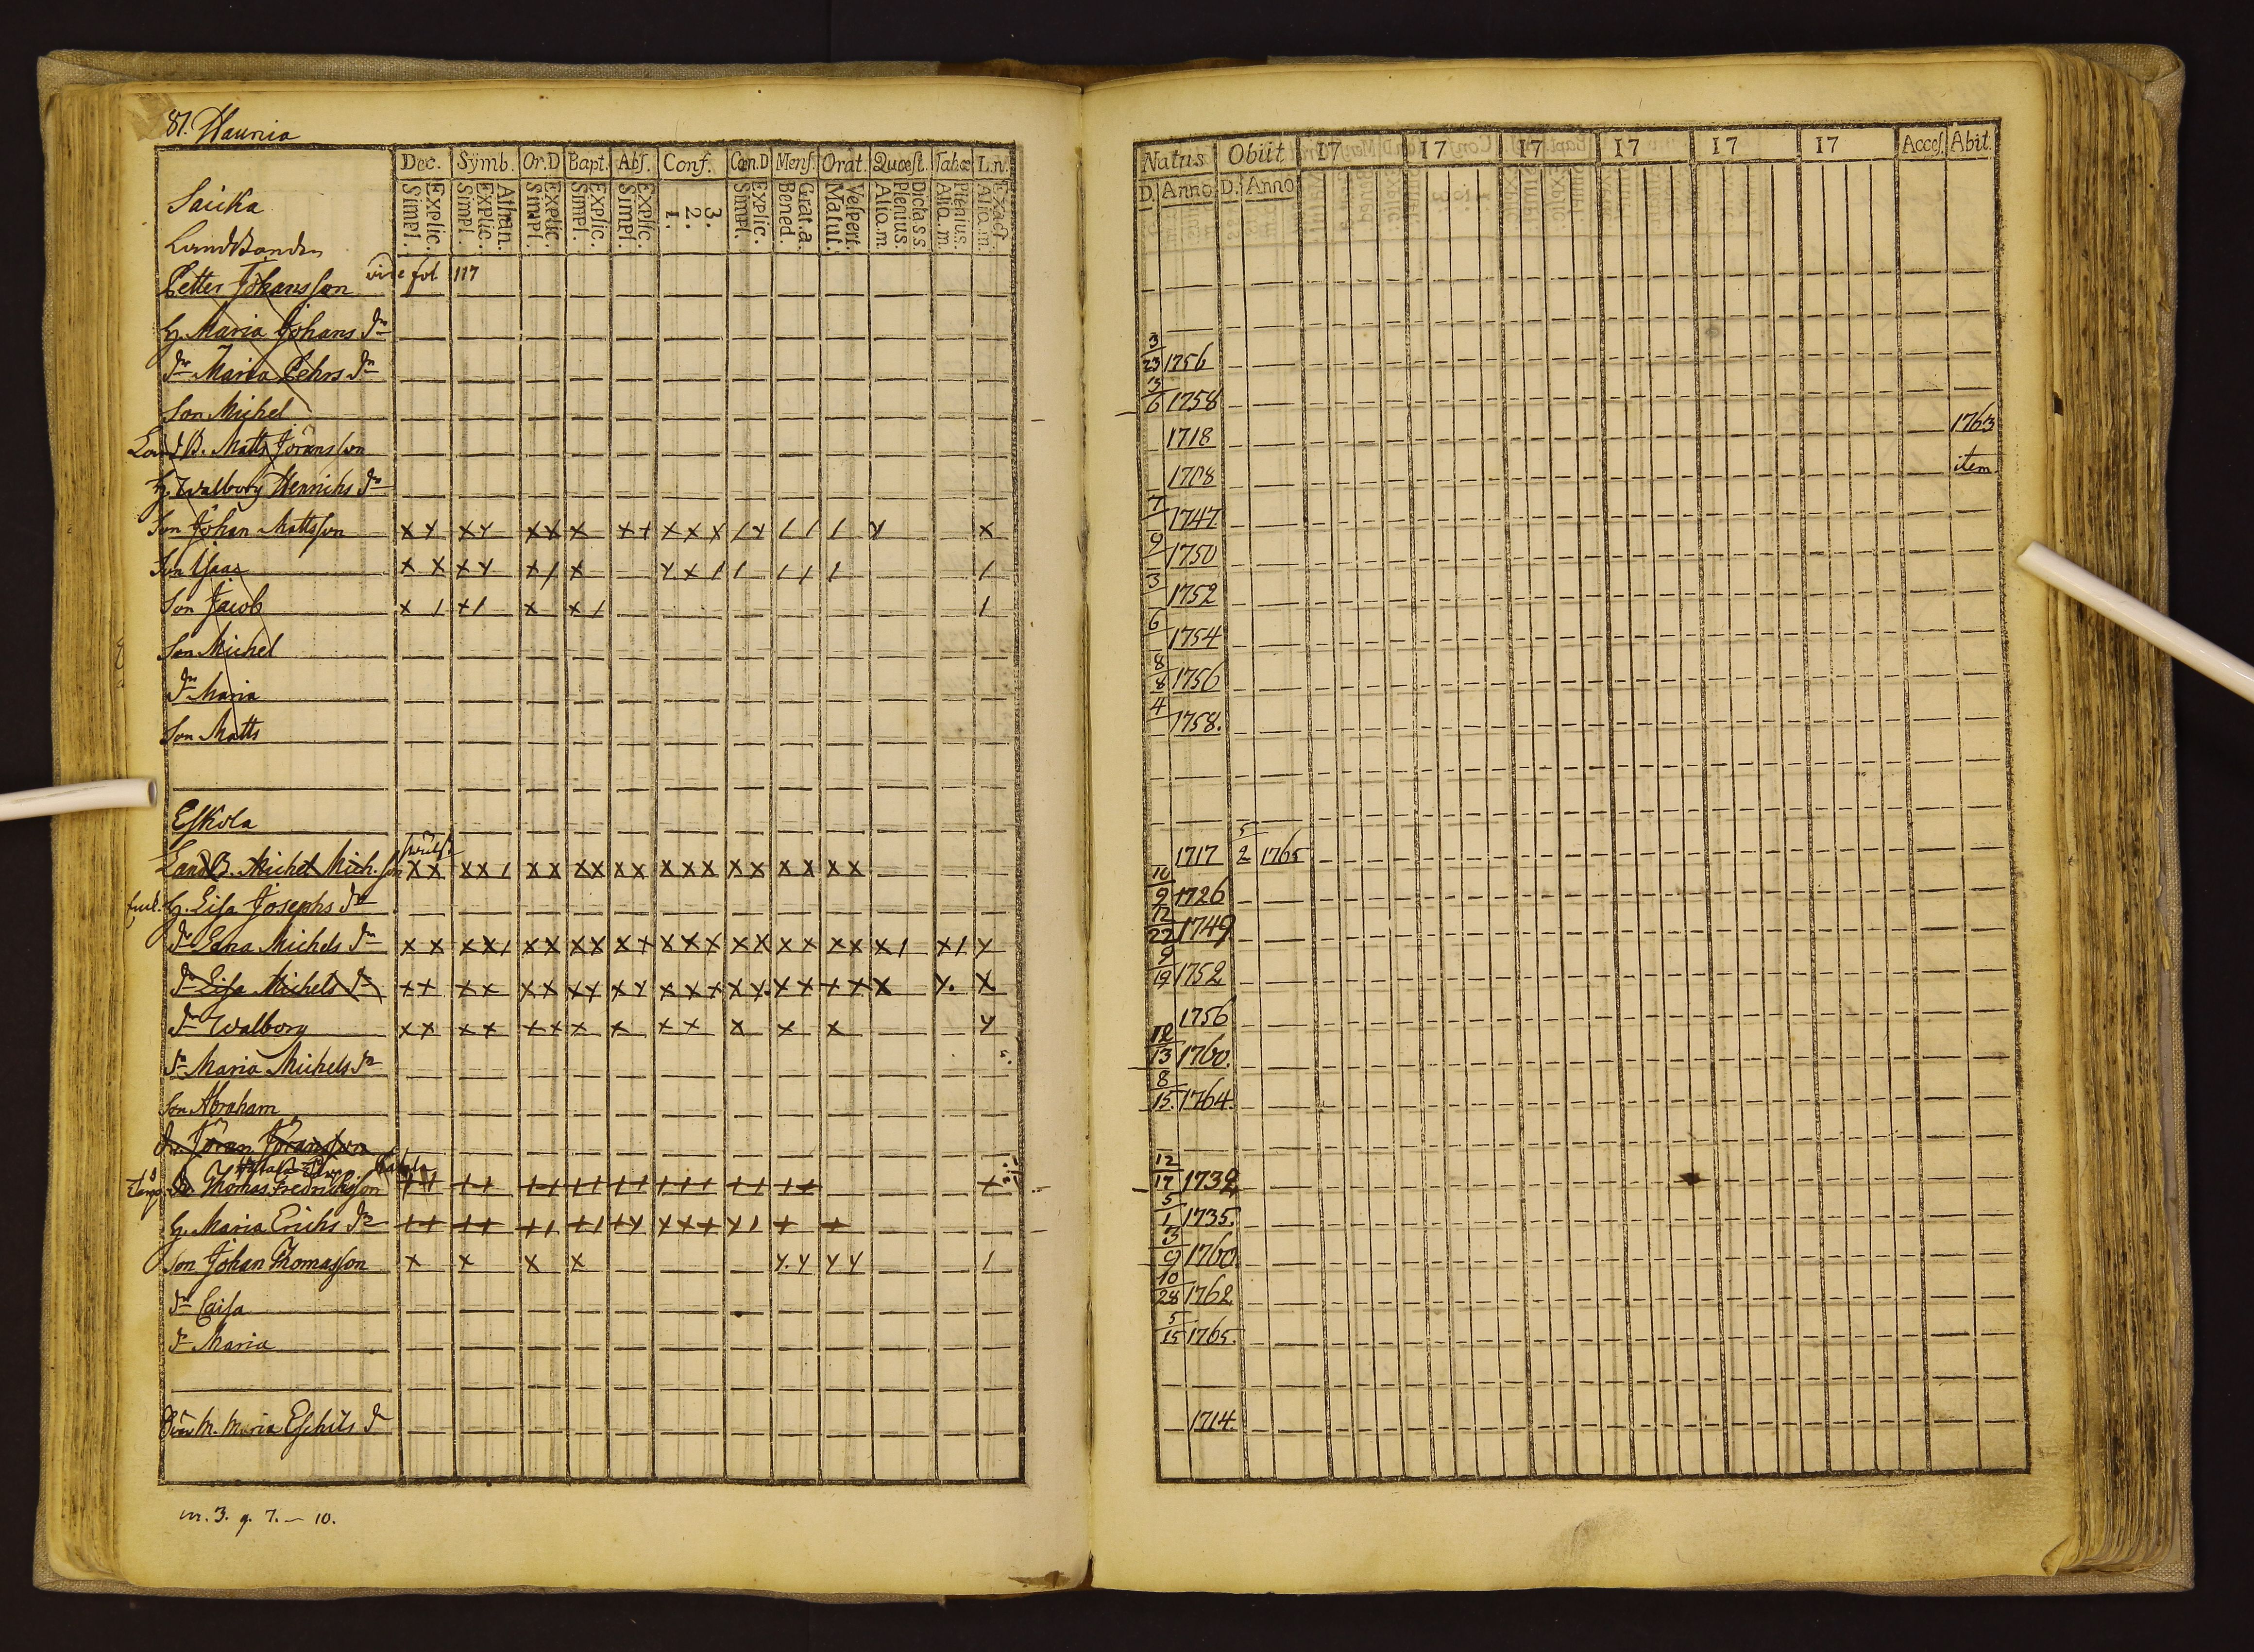 87. Haunia
Dec. Symb. Or.D Bapt. Abs. Conf. Cœn.D Mens. Orat. Quæst. Tabæ L.n.
Simpl. Explic. Simpl. Explic. Athan. Simpl. Explic. Simpl. Explic. Simpl. Explic. 1. 2. 3. Simpl. Explic. Bened. Grat.a. Matut. Vespert. Aliq.m. Plenius. Dicta s s. Aliq.m. Plenius. Aliq.m. Exact
Natus Obiit 17 17 17 17 17 17 Access. Abit.
D. Anno D. Anno
Saicka
Landbonden
Petter Johansson vide fol 117
H. Maria Johans dr
dr Maria Pehrs dr 3/23 1756
Son Michel 3/6 1758
Land B. Matts Jöransson 1718 1763
H. Walborg Henrichs dr 1708 item
Son Johan Mattsson x x x x x x x x x x x x / x / / / x x 7 1747
Son Isaac x x x x x / x x x / / / / / / 9 1750
Son Jacob x / x / x x / / 3 1752
Son Michel 6 1754
dr Maria 8/8 1756
Son Matts 4 1758.
Eskola
Land B. Michel Mich. son x x x x / x x x x x x x x x x x x x x x 1717 5/2 1765
H. Lisa Josephs dr 10/9 1726
dr Lena Michels dr x x x x / x x x x x x x x x x x x x x x x / x / x 12/22 1749
dr Lisa Michels dr x x x x x x x x x x x x x x x x x x x x x. x 9/19 1752
dr Walborg x x x x x x x x x x x x x x 1756
dr Maria Michels dr 12/13 1760.
Son Abraham 8/15. 1764.
Jöran Jöransson
Thomas Fredricksson 12/17 1732
H. Maria Erichs dr + + + + + / + / + x x x + x / + + 5/1 1735.
Son Johan Thomasson x x x x x. x x x / 3/9 1760
dr Caisa 10/28 1762
dr Maria 5/15 1765.
Svär M. Maria Eschils d 1714.
vr. 3. q. 7. – 10.